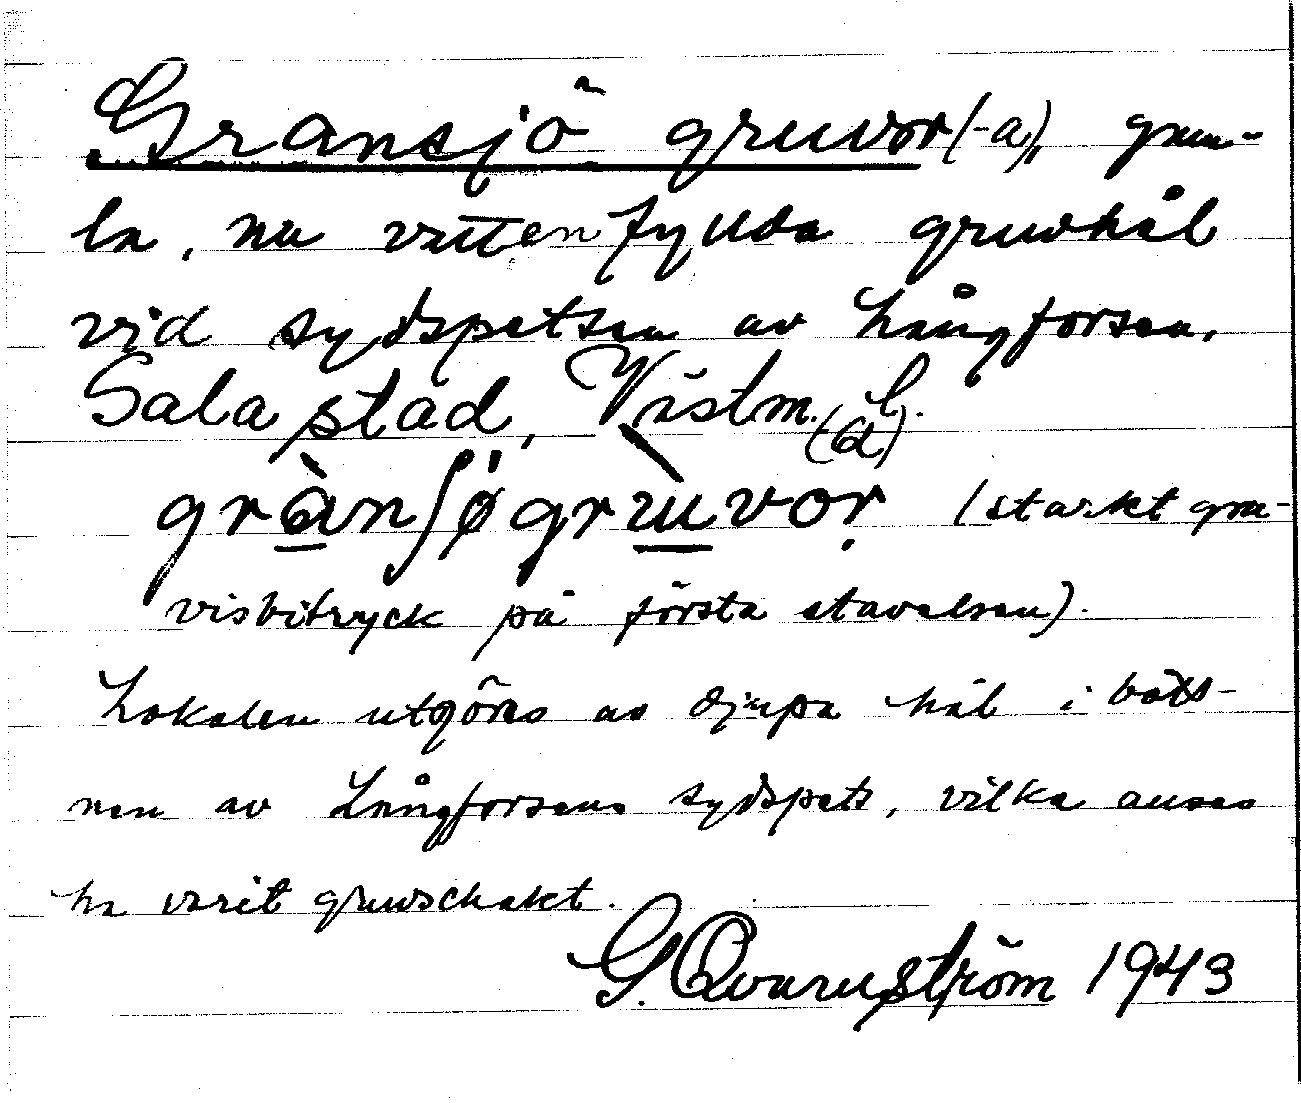 Gransjö gruvor (-a), gam-
la, nu vattenfyllda gruvhål
vid sydspetsen av Långforsen,
Sala stad, Västm. l.
(a)
grànʃøgrùvor (starkt gra-
visbitryck på första stavelsen).
Lokalen utgöres av djupa hål i bott-
nen av Långforsens sydspets, vilka anses
ha varit gruvschakt.
G. Qvarnström 1943